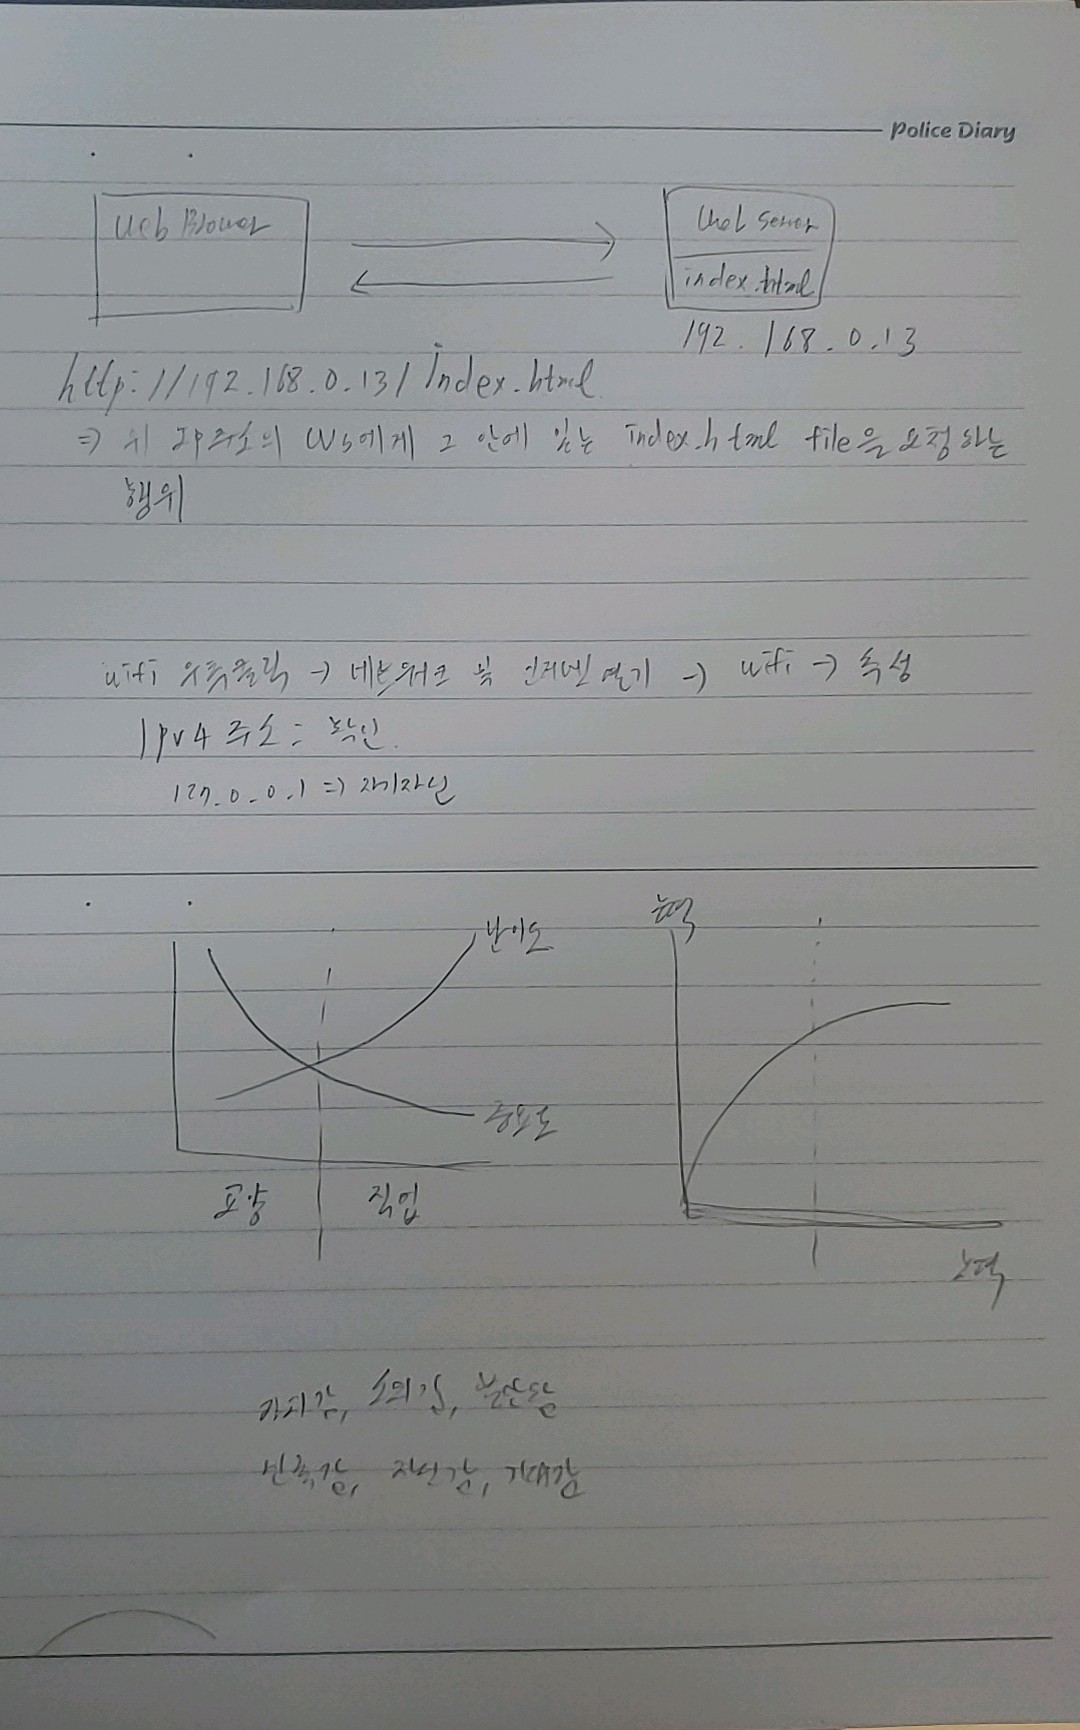 Police Diary
Web Browser
Web Server
index.html
192.168.0.13
http://192.168.0.13/index.html
=> 위 IP주소의 WS에게 그 안에 있는 index.html file을 요청하는
행위
wifi 우측클릭 → 네트워크 및 인터넷 열기 → wifi → 속성
IPv4 주소 : 확인.
127.0.0.1 => 자기자신
난이도
중요도
교양 직업
능력
노력
자괴감, 소외감, 불안감
만족감, 자신감, 기대감